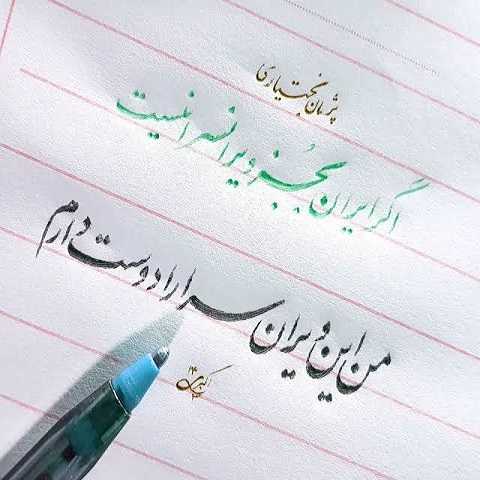 پژمان بختیاری
اگر ایران بجز ویران‌سرا نیست
من این ویران سرا را دوست دارم